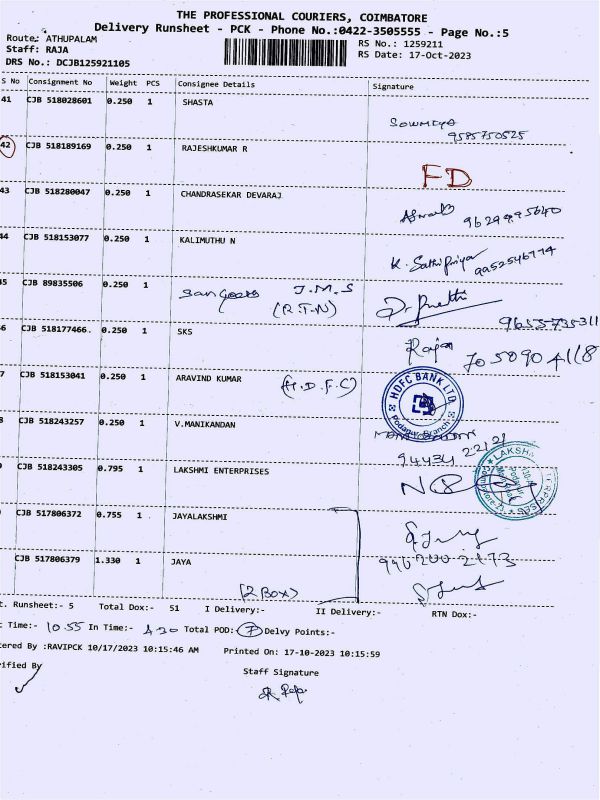 THE PROFESSIONAL COURIERS, COIMBATORE
Delivery Runsheet - PCK - Phone No.:0422-3505555 - Page No.:5
Route: ATHUPALAM
Staff: RAJA
RS No.: 1259211
DRS No.: DCJB125921105
RS Date: 17-Oct-2023
S No Consignment No Weight PCS Consignee Details Signature
41 CJB 518028601 0.250 1 SHASTA
Sowmiya
9585750525
42 CJB 518189169 0.250 1 RAJESHKUMAR R
FD
43 CJB 518280047 0.250 1 CHANDRASEKAR DEVARAJ
44 CJB 518153077 0.250 1 KALIMUTHU N
K. Sathipriya
9952546774
5 CJB 89835506 0.250 1 J.M.S
(R.T.N)
9655735311
6 CJB 518177466. 0.250 1 SKS
Raja
7050904118
7 CJB 518153041 0.250 1 ARAVIND KUMAR (H.D.F.C)
HDFC BANK LTD.
Podanur Branch
CJB 518243257 0.250 1 V.MANIKANDAN
94434 22121
CJB 518243305 0.795 1 LAKSHMI ENTERPRISES
CJB 517806372 0.755 1 JAYALAKSHMI
9962002173
CJB 517806379 1.330 1 JAYA
(2 BOX)
t. Runsheet:- 5 Total Dox:- 51 I Delivery:- II Delivery:- RTN Dox:-
Time:- 10.55 In Time:- 4.20 Total POD:- 7 Delvy Points:-
tered By :RAVIPCK 10/17/2023 10:15:46 AM Printed On: 17-10-2023 10:15:59
rified By
Staff Signature